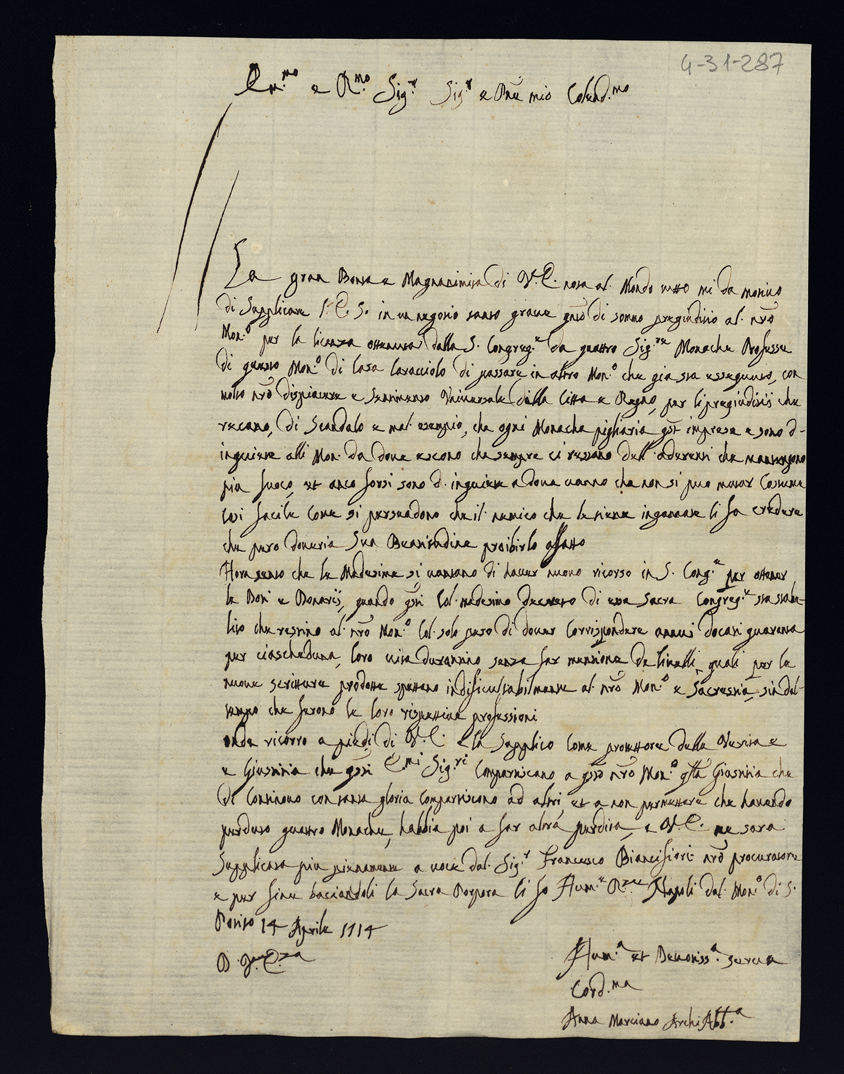 4-31-287
Em.mo e R.mo Sig.r Sig.r e Pñe mio Colend.mo
La gran Bontà e Magnanimità di V.E. nota al Mondo tutto mi dà motivo
di Supplicare V.E.S. in un negotio tanto grave qñto di sommo pregiuditio al nrõ
Mon.o per la licenza ottenuta dalla S. Congreg.e da quattro Sig.re Monache Professe
di questo Mon.o di Casa Caracciolo di passare in altro Mon.o che già sta esseguito, con
molto nrõ dispiacere e Sentimento Universale della Città e Regno, per li pregiuditij che
recano, di Scandalo e mal esempio, che ogni Monacha pigliaria qst impresa e sono d'
inquiete alli Mon. da dove escono che sempre ci restano dell' aderenti che mantengono
più fuoco, et anco forsi sono d' inquiete a dove vanno che non si può mutar Costume
così facile come si persuadono che il nemico che le tiene ingannate li fa credere
che però doveria Sua Beatitudine proibirlo affatto
Hora sento che le Madesime si vantano di haver nuovo ricorso in S. Cong.e per ottener
le Doti e Donatij, quando qsti Col madesimo decreto di essa Sacra Congreg.e sta stabi-
lito che restino al nrõ Mon.o Col solo peso di dover Corrispondere annui docati quaranta
per ciascheduna, loro vita durantino senza far mentione de Livelli, quali per le
nuove scritture prodotte spettano indifficultabilmente al nrõ Mon.o e Sacrestia, sin dal
tempo che furono le loro rispettive professioni
onde ricorro a piedi di V.E. e la Supplico Come protettore della Verità e
e Giustitia che qsti E.mi Sig.ri Compartiscano a qsto nrõ Mon.o qlla Giustitia che
di Continuo con tanta gloria Compartiscono ad altri et a non permettere che havendo
perduto quattro Monache, habbia poi a far altra perdita, e V.E. ne sarà
Supplicata più pienamente a voce dal Sig.r Francesco Biancifiori nrõ procuratore
e per fine baciandoli la Sacra Porpora li fo Hum.e R.za Napoli dal Mon.o di S.
Potito 14 Aprile 1714
D. V. E.za
Hum.a et Devotiss.a serva
Cord.ma
Anna Marciano Archi Abb.a